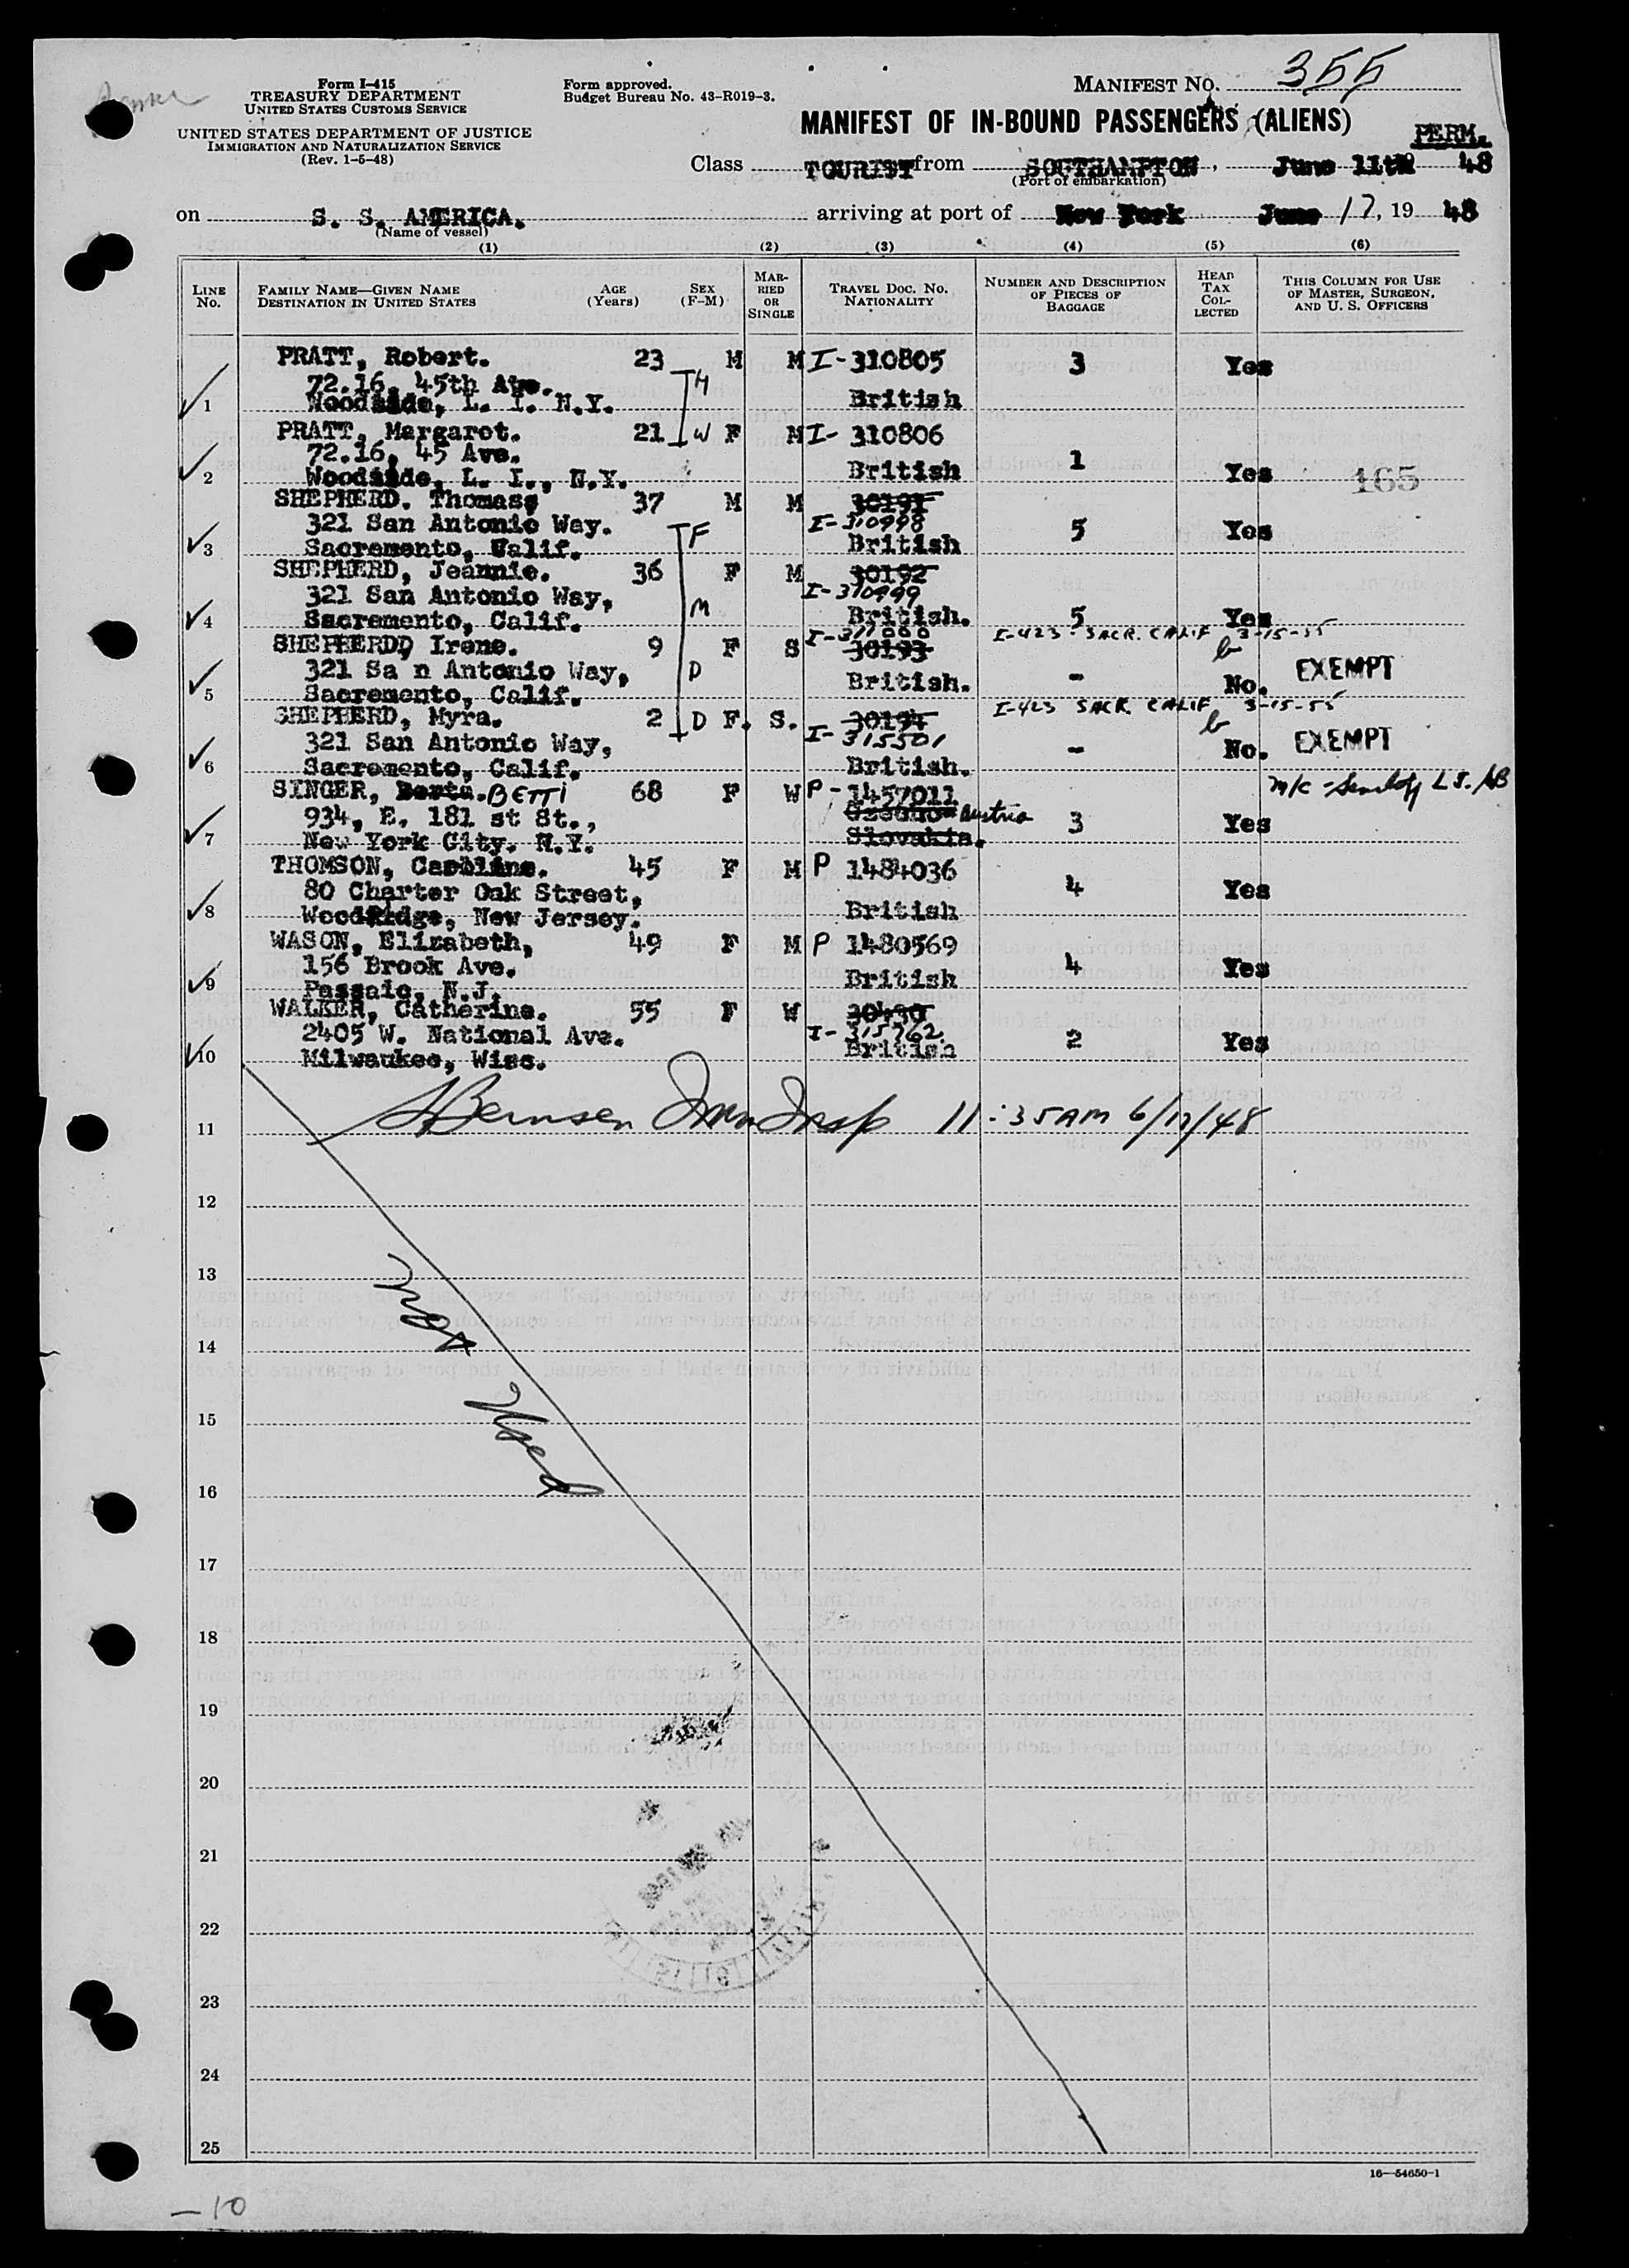 Form I-415
TREASURY DEPARTMENT
UNITED STATES CUSTOMS SERVICE
UNITED STATES DEPARTMENT OF JUSTICE
IMMIGRATION AND NATURALIZATION SERVICE
(Rev. 1-5-48)
Form approved.
Budget Bureau No. 43-R019-3.
MANIFEST NO. 355
MANIFEST OF IN-BOUND PASSENGERS (ALIENS)
PERM.
Class TOURIST from SOUTHAMPTON, June 11th 48
(Port of embarkation)
on S. S. AMERICA. arriving at port of New York June 17, 19 48
(Name of vessel)
(1) (2) (3) (4) (5) (6)
LINE No. FAMILY NAME—GIVEN NAME DESTINATION IN UNITED STATES AGE (Years) SEX (F-M) MARRIED OR SINGLE TRAVEL DOC. NO. NATIONALITY NUMBER AND DESCRIPTION OF PIECES OF BAGGAGE HEAD TAX COLLECTED THIS COLUMN FOR USE OF MASTER, SURGEON, AND U. S. OFFICERS
PRATT, Robert. 23 M M I-310805 3 Yes
72.16, 45th Ave. H
1 Woodside, L. I. N.Y. British
PRATT, Margaret. 21 W F M I- 310806
72.16, 45 Ave. 1
2 Woodside, L. I., N.Y. British Yes 165
SHEPHERD. Thomas, 37 M M 30191
321 San Antonio Way. F I-310998 5 Yes
3 Sacremento, Calif. British
SHEPHERD, Jeannie. 36 F M 30192
321 San Antonio Way, M I-310999
4 Sacremento, Calif. British. 5 Yes
SHEPHERDD, Irene. 9 F S I-311000 30193 I-423 - SACR. CALIF 3-15-55
321 Sa n Antonio Way, D
5 Sacremento, Calif. British. - No. EXEMPT
SHEPHERD, Myra. 2 D F. S. 30194 I-423 SACR. CALIF 3-15-55
321 San Antonio Way, I-315501
6 Sacremento, Calif. British. - No. EXEMPT
SINGER, Berta. BETTI 68 F W P - 1457011
934, E. 181 st St., Czecho- Austria 3 Yes
7 New York City. N.Y. Slovakia.
THOMSON, Caroline. 45 F M P 1484036
80 Charter Oak Street, 4 Yes
8 WoodRidge, New Jersey. British
WASON, Elizabeth, 49 F M P 1480569
156 Brook Ave. 4 Yes
9 Passaic, N.J. British
WALKER, Catherine. 55 F W 30430
2405 W. National Ave. I-315762 2 Yes
10 Milwaukee, Wisc. British
11 Imm Insp 11:35 AM 6/17/48
12
13
not
14
15
Used
16
17
18
19
20
21
22
23
24
25
16—54650-1
-10